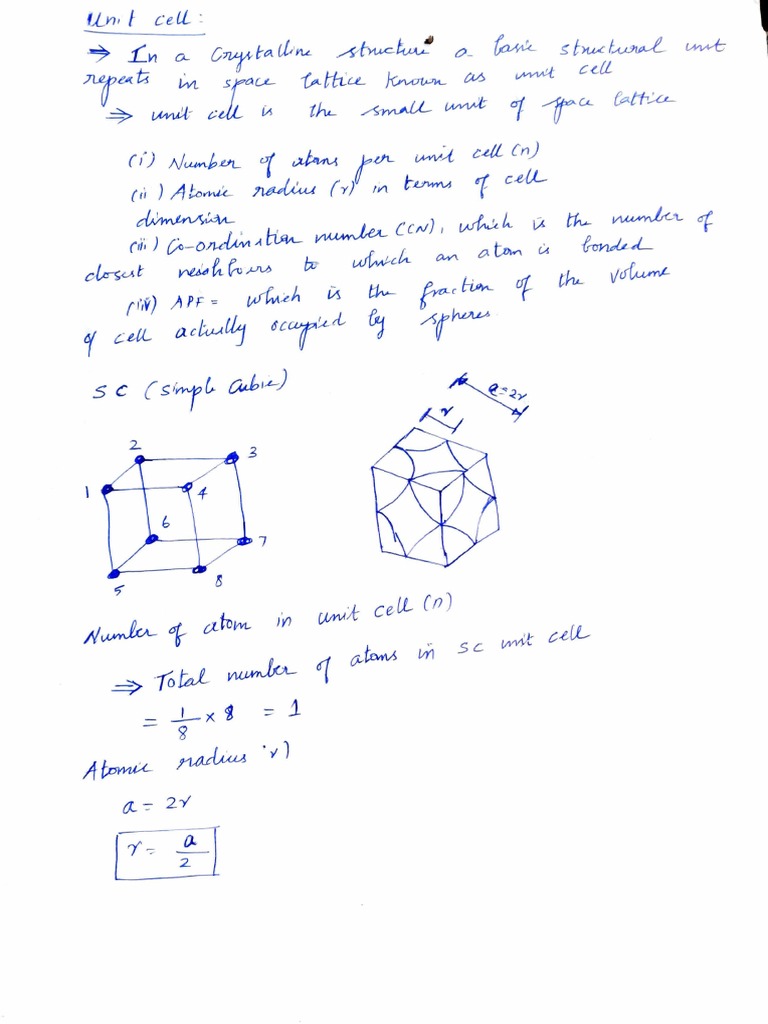 Unit cell:
⇒ In a crystalline structure a basic structural unit
repeats in space lattice known as unit cell
⇒ unit cell is the small unit of space lattice
(i) Number of atoms per unit cell (n)
(ii) Atomic radius (r) in terms of cell
dimension
(iii) Co-ordination number (CN), which is the number of
closest neighbours to which an atom is bonded
(iv) APF = which is the fraction of the volume
of cell actually occupied by spheres
SC (Simple Cubic)
a=2r
r
2
3
1
4
6
7
5
8
Number of atom in unit cell (n)
⇒ Total number of atoms in SC unit cell
= 1/8 × 8 = 1
Atomic radius (r)
a = 2r
r = a/2